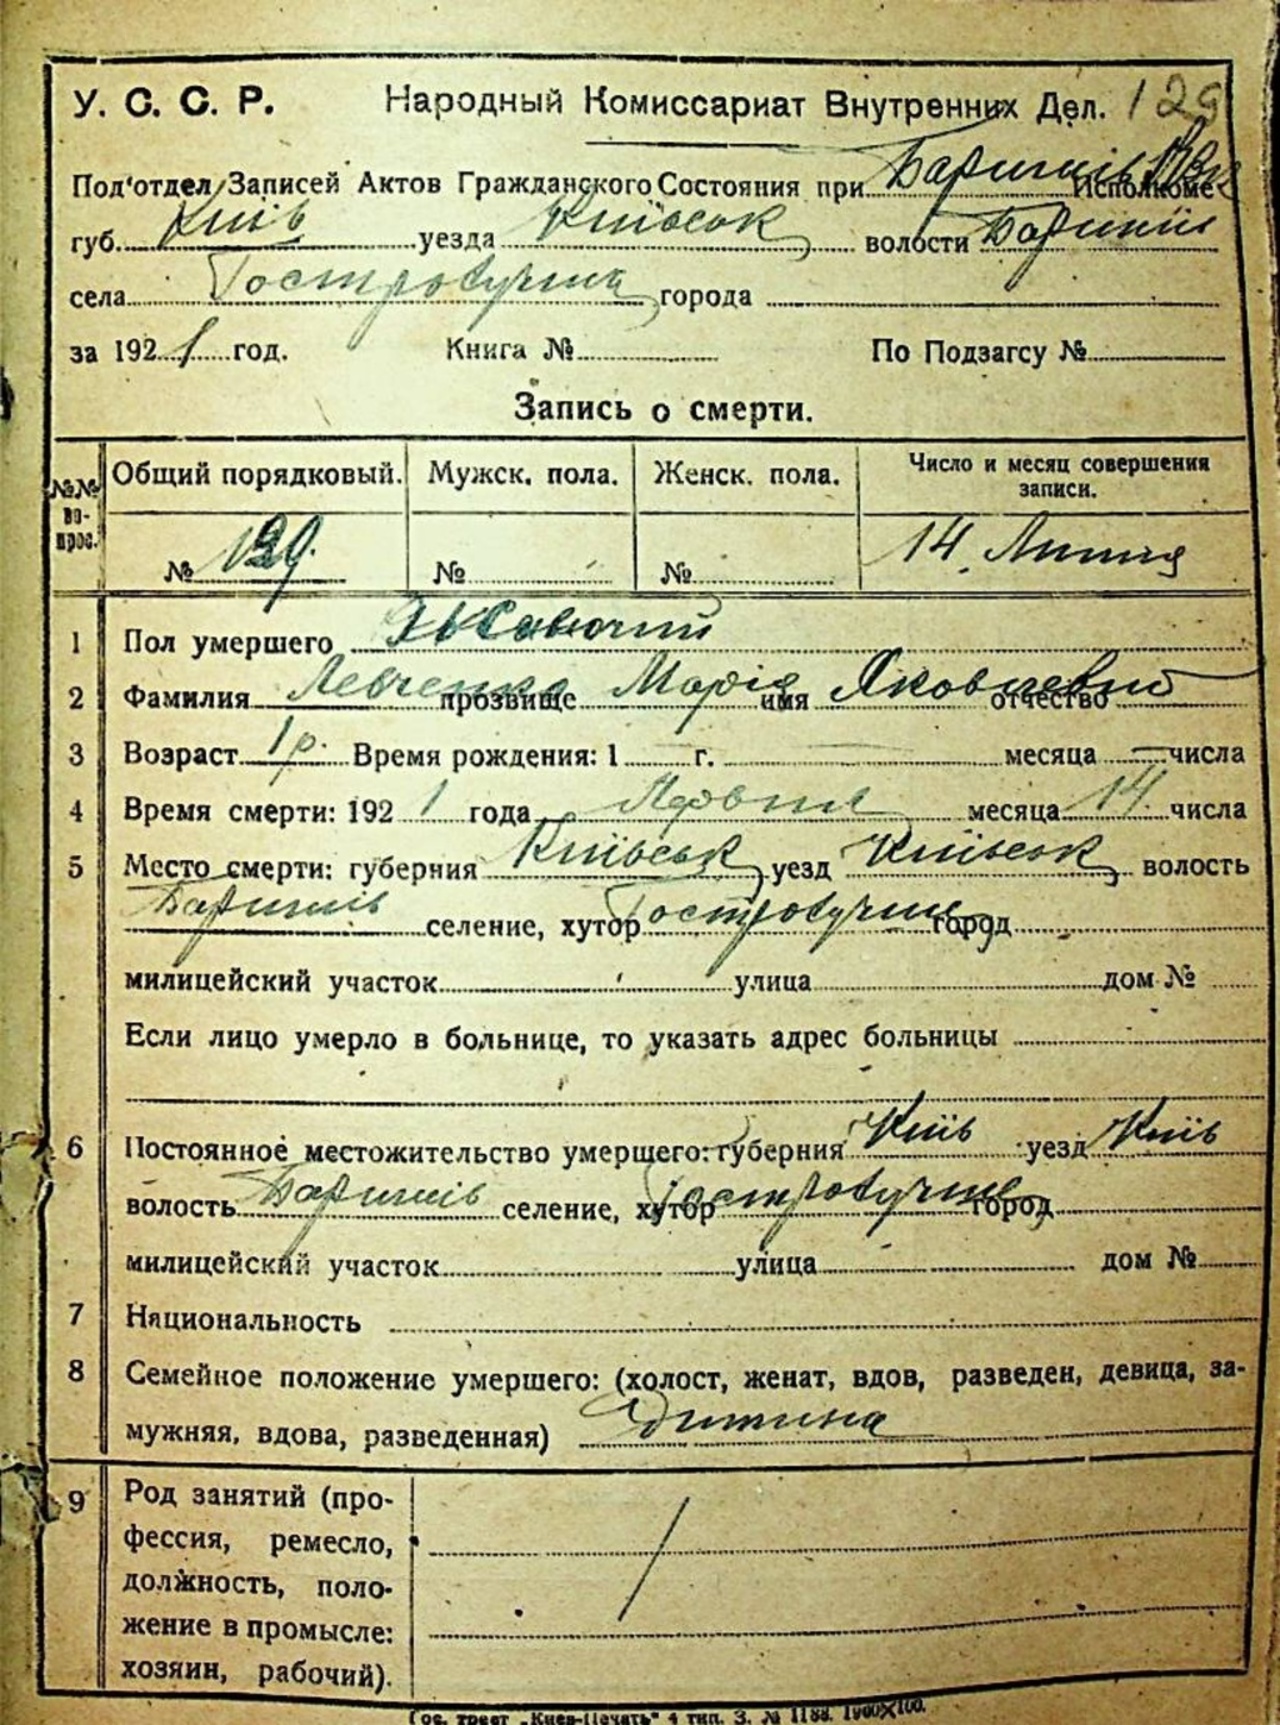 У. С. С. Р. Народный Комиссариат Внутренних Дел. 129
Под'отдел Записей Актов Гражданского Состояния при Баришів Исполкоме
губ. Київ уезда Київськ волости Баришів
села Гостролучча города
за 1921 год. Книга № По Подзагсу №
Запись о смерти.
№№ во-прос. Общий порядковый. Мужск. пола. Женск. пола. Число и месяц совершения записи.
№ 129. № № 14. Липня
1 Пол умершего
2 Фамилия Левченко прозвище Марія имя Яковлевна отчество
3 Возраст 1 р. Время рождения: 1 г. месяца — числа
4 Время смерти: 1921 года месяца 14 числа
5 Место смерти: губерния Київськ уезд Київськ волость
Баришів селение, хутор Гостролучче город
милицейский участок улица дом №
Если лицо умерло в больнице, то указать адрес больницы
6 Постоянное местожительство умершего: губерния Київ уезд Київ
волость Баришів селение, хутор Гостролучче город
милицейский участок улица дом №
7 Национальность
8 Семейное положение умершего: (холост, женат, вдов, разведен, девица, за-
мужняя, вдова, разведенная) дитина
9 Род занятий (про-
фессия, ремесло,
должность, поло-
жение в промысле:
хозяин, рабочий).
Гос. трест „Киев-Печать" 4 тип. З. № 1188. 1900×100.